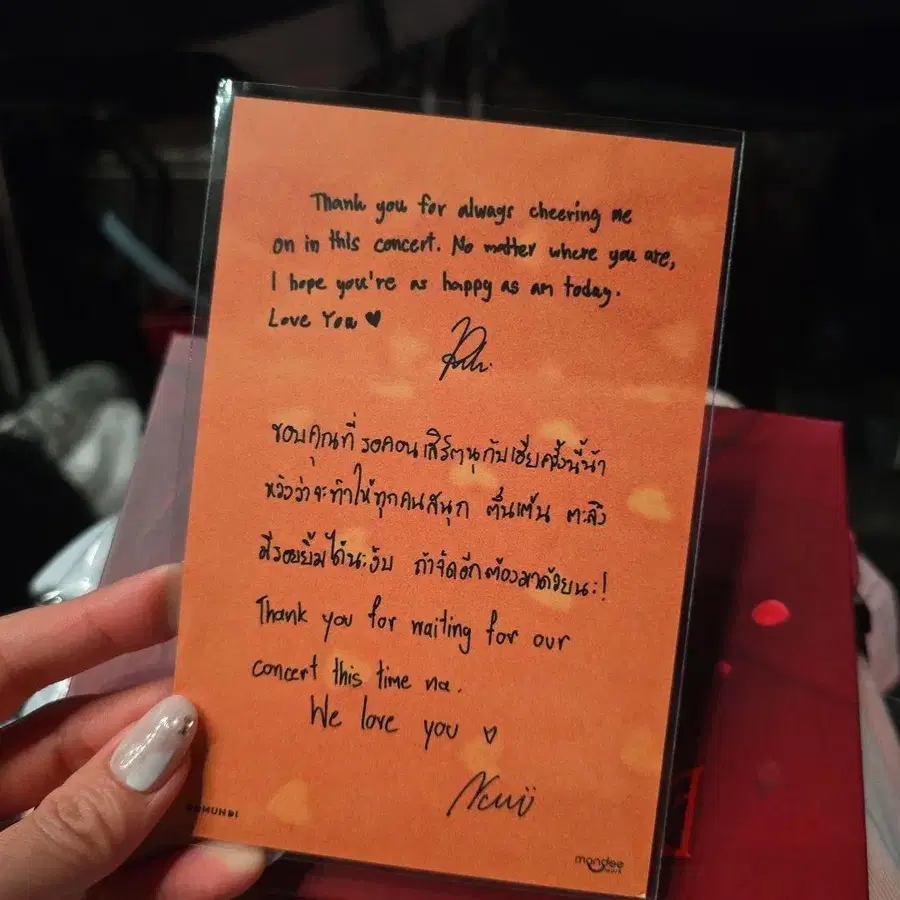 Thank you for always cheering me
on in this concert. No matter where you are,
I hope you're as happy as am today.
Love You ♥
ขอบคุณที่รอคอนเสิร์ตนุกับเฮียครั้งนี้น้า
หวังว่าจะทำให้ทุกคนสนุก ตื่นเต้น ตะลึง
มีรอยยิ้มได้นะงับ ถ้าจัดอีกต้องมาด้วยนะ!
Thank you for waiting for our
concert this time na.
We love you ♡
DOMUNDI
mandee
work